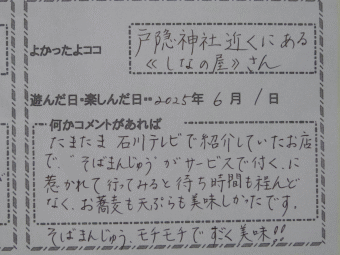 よかったよココ
戸隠神社近くにある
≪しなの屋≫さん
遊んだ日・楽しんだ日…2025年6月1日
何かコメントがあれば
たまたま石川テレビで紹介していたお店
で、"そばまんじゅう"がサービスで付く、に
惹かれて行ってみると待ち時間も殆んど
なく、お蕎麦も天ぷらも美味しかったです。
そばまんじゅう、モチモチですごく美味!!